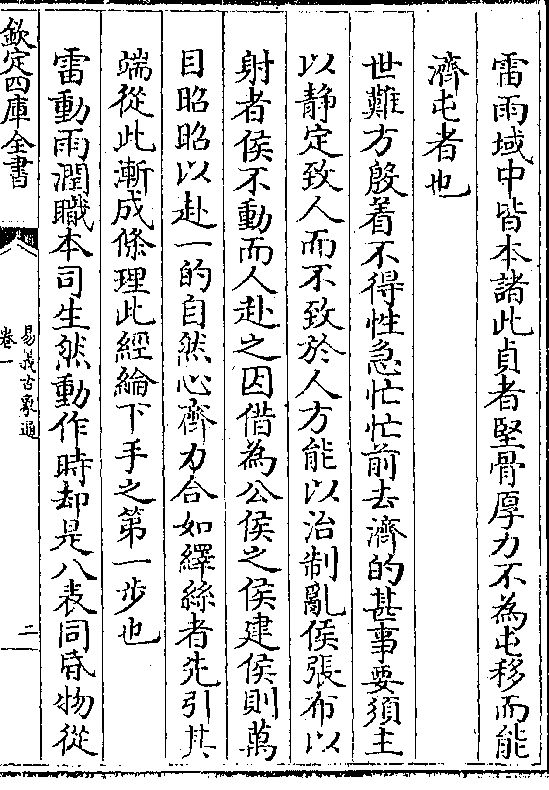 雷雨域中皆本諸此貞者堅骨厚力不為屯移而能
濟屯者也
世難方殷着不得性急忙忙前去濟的甚事要須主
以静定致人而不致於人方能以治制亂侯張布以
射者侯不動而人赴之因借為公侯之侯建侯則萬
目昭昭以赴一的自然心齊力合如繹絲者先引其
端從此漸成條理此經綸下手之第一步也
雷動雨潤職本司生然動作時却是八表同昏物從
欽定四庫全書
易義古象通
卷一
二